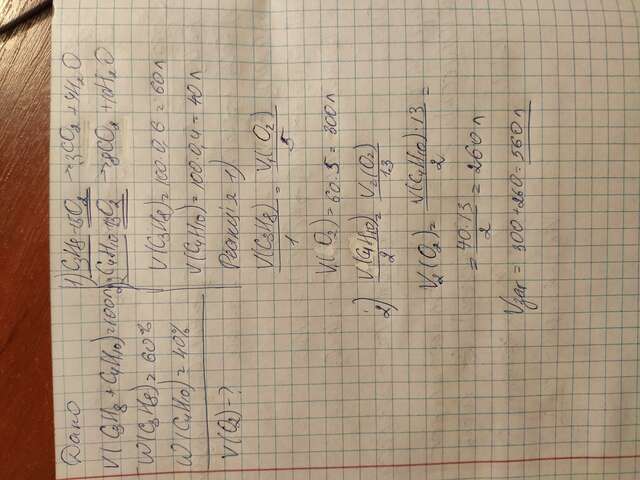 Дано
V(C3H8 + C4H10)=100л
W(C3H8)=60%
W(C4H10)=40%
V(O2)-?
1) C3H8+5O2 →3CO2+4H2O
2) C4H10+13O2 →8CO2+10H2O
V(C3H8)=100·0,6=60л
V(C4H10)=100·0,4=40л
Реакція 1)
V(C3H8)/1 = V1(O2)/5
V1(O2)=60·5=300л
2) V(C4H10)/2 = V2(O2)/13
V2(O2)= V(C4H10)·13/2 =
= 40·13/2 = 260л
Vзаг = 300+260=560л